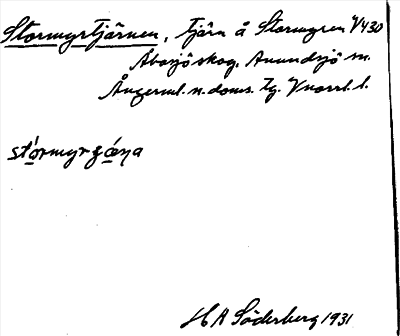 Stormyrtjärnen, tjärn å Stormyren V430
Åbosjö skog, Anundsjö sn.
Ångerml. n. doms. tg. Vnorrl. l.
stórmyrȥǽṇa
H A Söderberg 1931